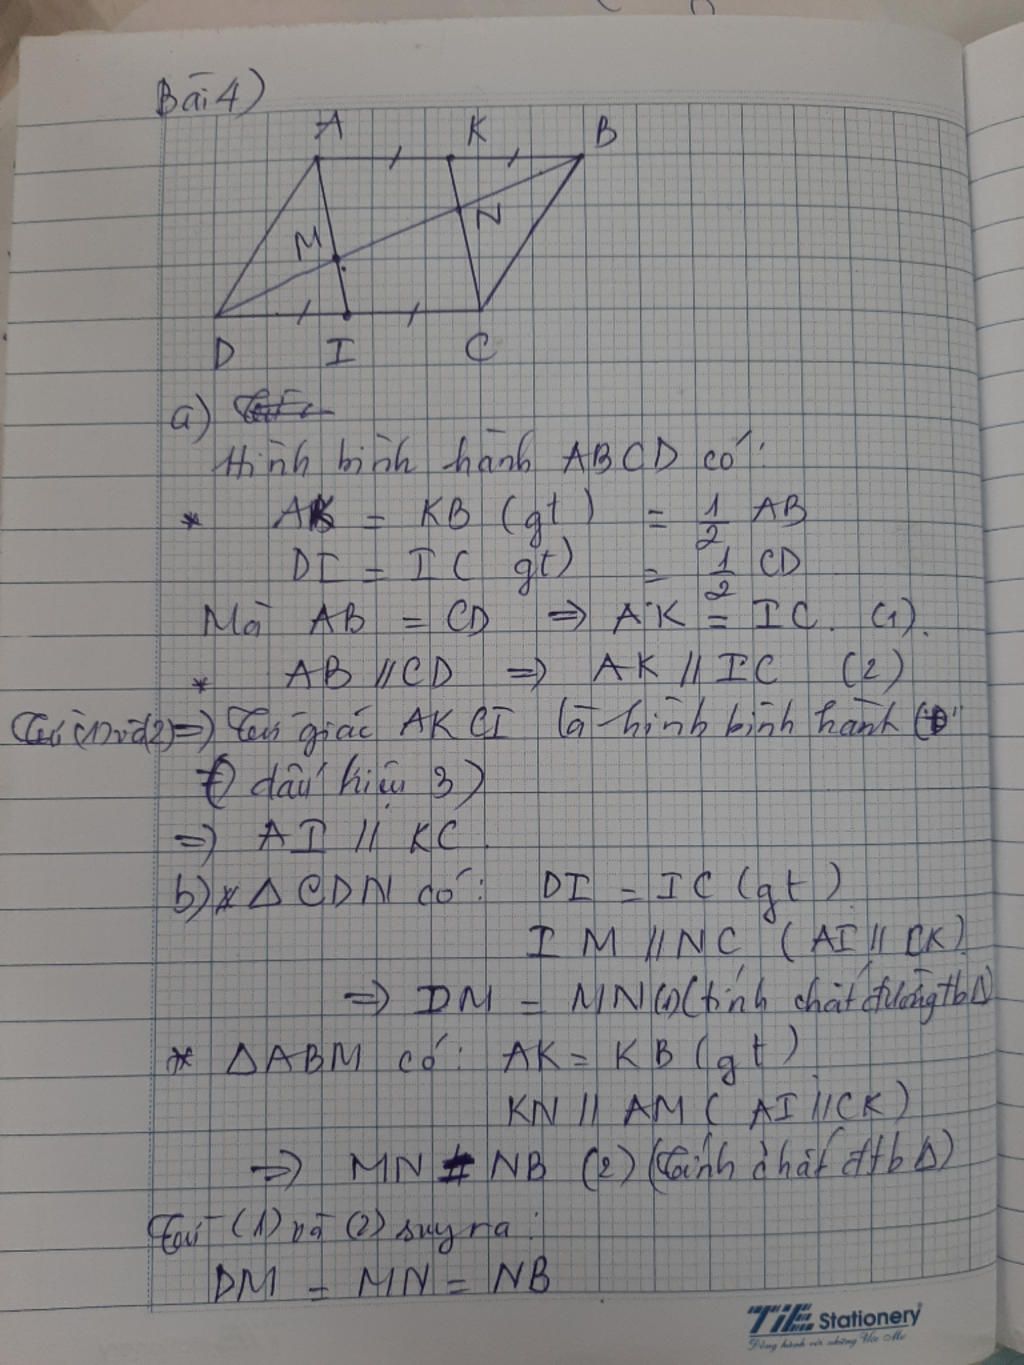 Bài 4)
A K B
M N
D I C
a)
Hình bình hành ABCD có:
* AK = KB (gt) = 1/2 AB
DI = IC gt) = 1/2 CD
Mà AB = CD => AK = IC. (1).
* AB // CD => AK // IC (2)
Từ (1) và (2) => Tứ giác AKCI là hình bình hành (
dấu hiệu 3)
=> AI // KC.
b) * Δ CDN có: DI = IC (gt)
IM // NC (AI // CK)
=> DM = MN (1) (tính chất đường tb Δ)
* ΔABM có: AK = KB (gt)
KN // AM (AI // CK)
=> MN = NB (2) (Tính chất đtb Δ)
Từ (1) và (2) suy ra:
DM = MN = NB
TiE Stationery
Đồng hành với những Ước Mơ